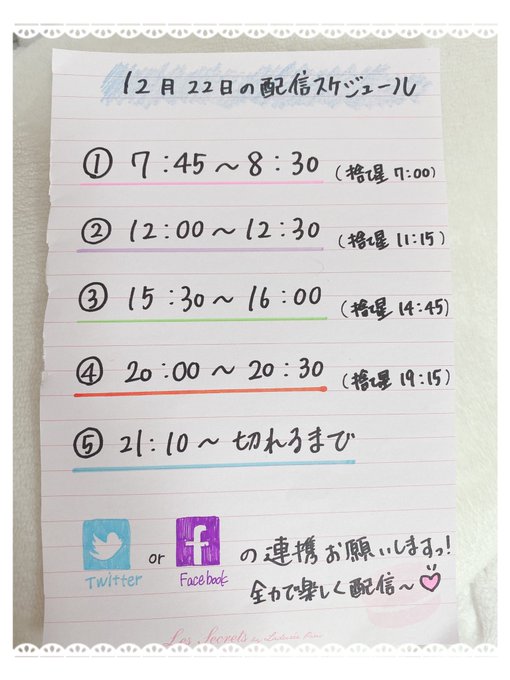 12月22日の配信スケジュール
① 7:45〜8:30 (捨て星 7:00)
② 12:00〜12:30 (捨て星 11:15)
③ 15:30〜16:00 (捨て星 14:45)
④ 20:00〜20:30 (捨て星 19:15)
⑤ 21:10〜切れるまで
Twitter or f Facebook の連携お願いしますっ!
全力で楽しく配信〜♡
Les Secrets by